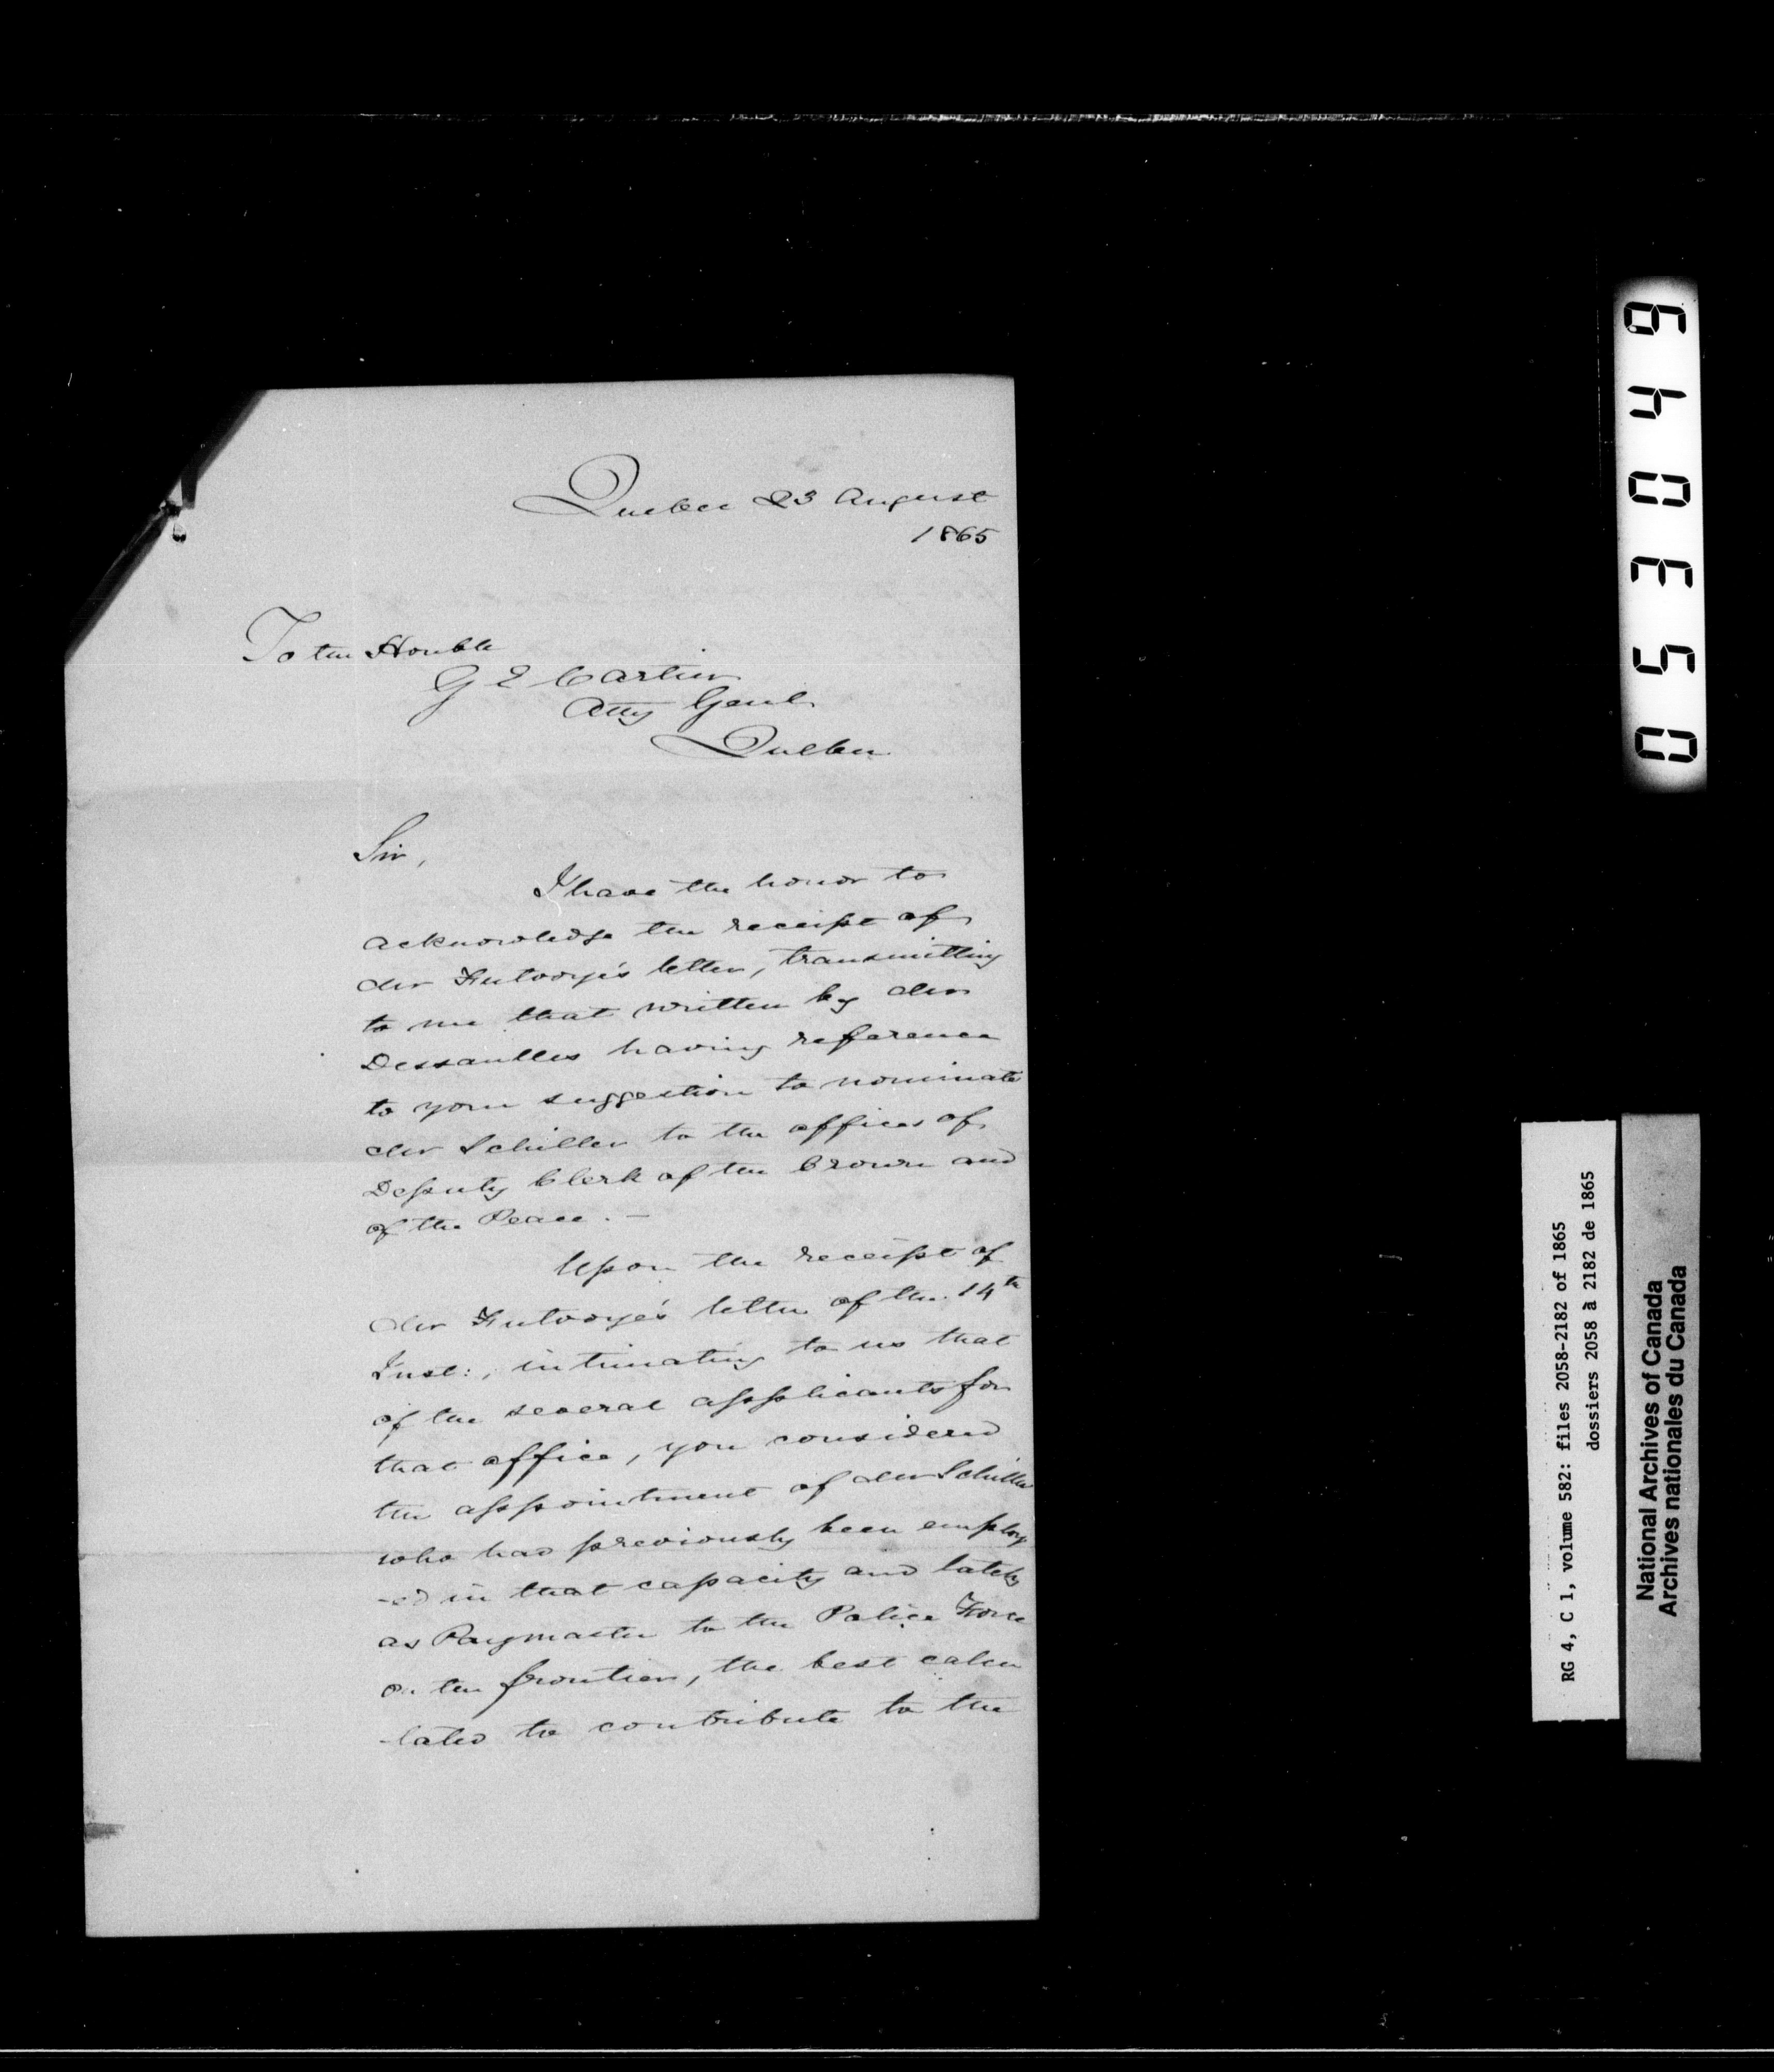 Quebec 23 August
1865
To the Honble
G E Cartier
Atty Genl
Quebec
Sir,
I have the honor to
acknowledge the receipt of
Mr Futvoye's letter, transmitting
to me that written by Mr
Dessaulles having reference
to your suggestion to nominate
Mr Schiller to the offices of
Deputy Clerk of the Crown and
of the Peace. —
Upon the receipt of
Mr Futvoye's letter of the 14th
Inst:, intimating to us that
of the several applicants for
that office, you considered
the appointment of Mr Schiller
who had previously been employ
-ed in that capacity and lately
as Paymaster to the Police Force
on the frontier, the best calcu
-lated to contribute to the
053049
RG 4, C 1, volume 582: files 2058-2182 of 1865
dossiers 2058 à 2182 de 1865
National Archives of Canada
Archives nationales du Canada